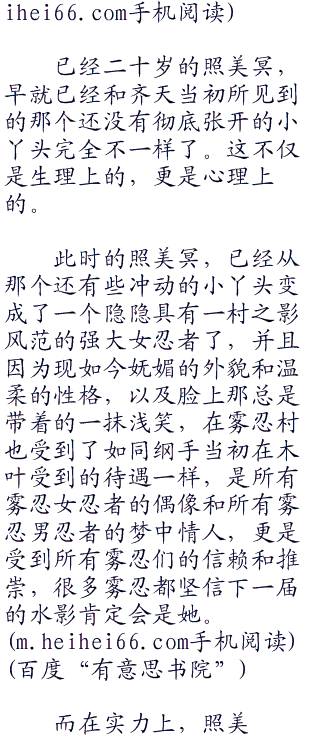 ihei66.com手机阅读)
已经二十岁的照美冥，
早就已经和齐天当初所见到
的那个还没有彻底张开的小
丫头完全不一样了。这不仅
是生理上的，更是心理上
的。
此时的照美冥，已经从
那个还有些冲动的小丫头变
成了一个隐隐具有一村之影
风范的强大女忍者了，并且
因为现如今妩媚的外貌和温
柔的性格，以及脸上那总是
带着的一抹浅笑，在雾忍村
也受到了如同纲手当初在木
叶受到的待遇一样，是所有
雾忍女忍者的偶像和所有雾
忍男忍者的梦中情人，更是
受到所有雾忍们的信赖和推
崇，很多雾忍都坚信下一届
的水影肯定会是她。
(m.heihei66.com手机阅读)
(百度“有意思书院”)
而在实力上，照美